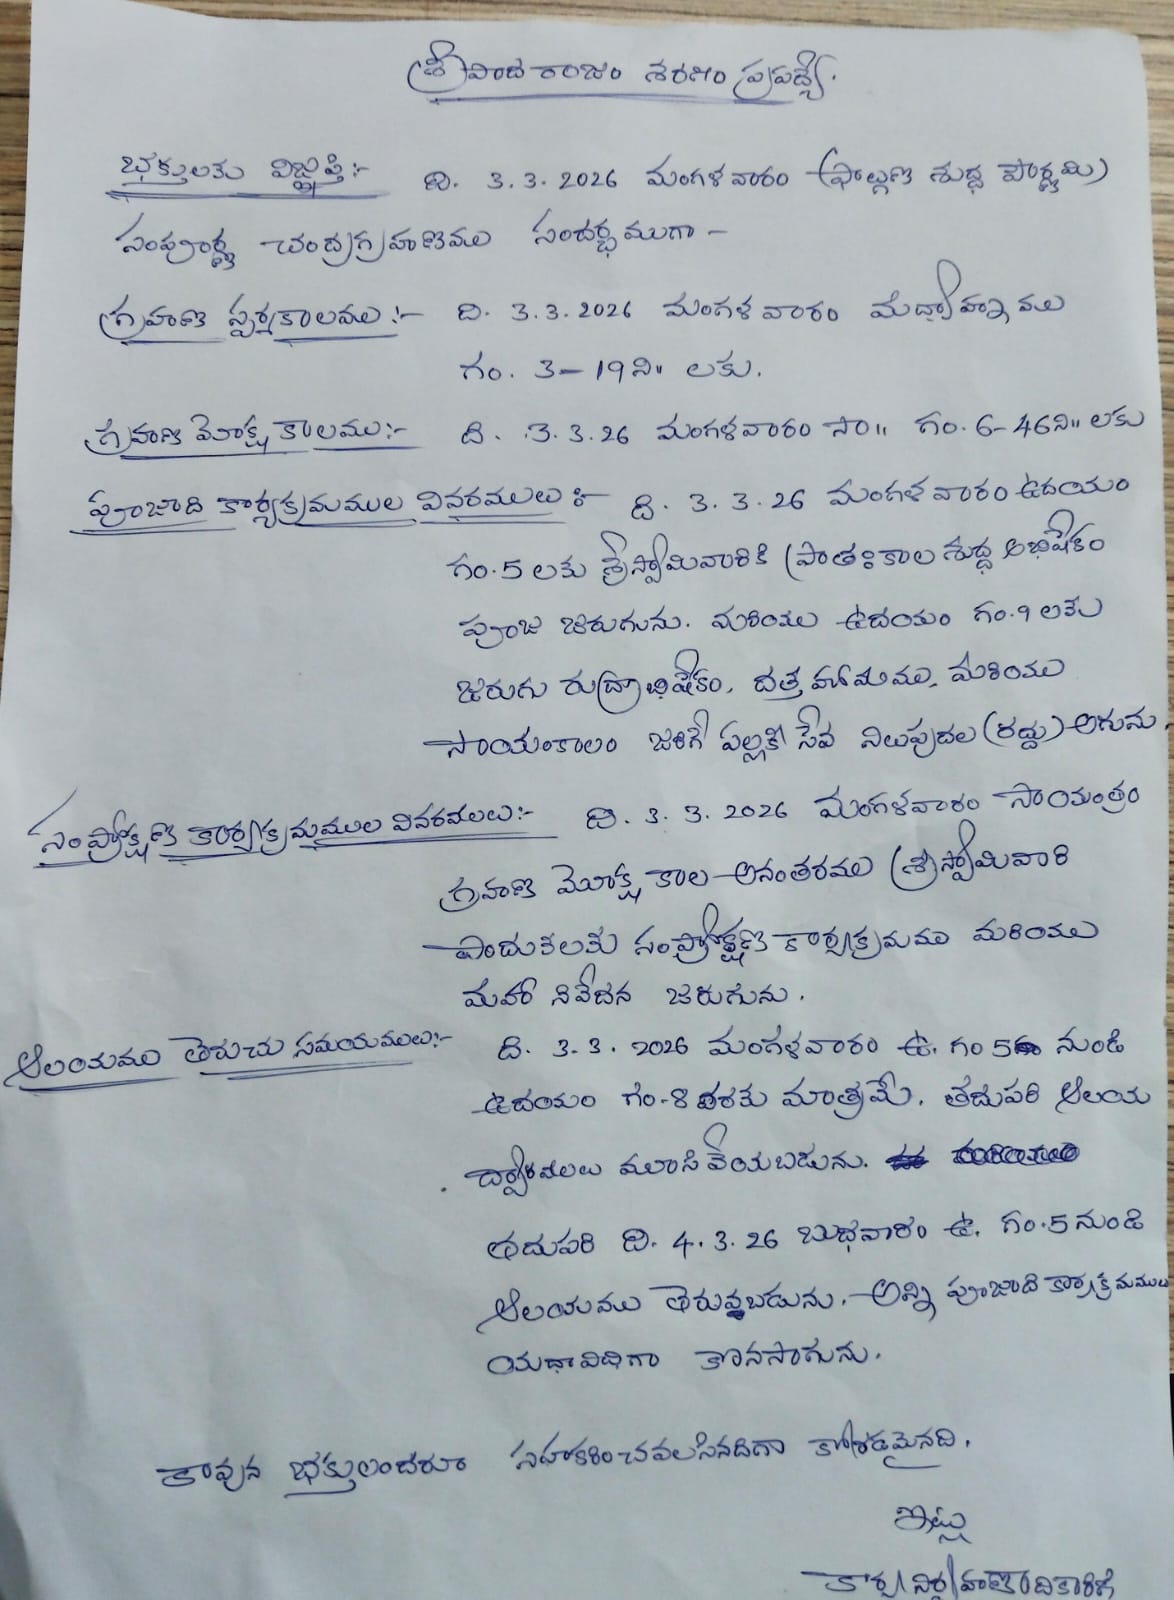 శ్రీపాద రాజం శరణం ప్రపద్యే.
భక్తులకు విజ్ఞప్తి:- ది. 3.3.2026 మంగళవారం (ఫాల్గుణ శుద్ధ పౌర్ణమి)
సంపూర్ణ చంద్రగ్రహణము సందర్భముగా -
గ్రహణ స్పర్శకాలము :- ది. 3.3.2026 మంగళవారం మధ్యాహ్నము
గం. 3-19ని॥ లకు.
గ్రహణ మోక్ష కాలము:- ది. 3.3.26 మంగళవారం సా॥ గం. 6-46ని॥ లకు
పూజాది కార్యక్రమముల వివరములు :- ది. 3.3.26 మంగళవారం ఉదయం
గం.5 లకు శ్రీస్వామివారికి ప్రాతఃకాల శుద్ధ అభిషేకం
పూజ జరుగును. మరియు ఉదయం గం.9 లకు
జరుగు రుద్రాభిషేకం, దత్త హోమము, మరియు
సాయంకాలం జరిగే పల్లకి సేవ నిలుపుదల (రద్దు) అగును.
సంప్రోక్షణ కార్యక్రమముల వివరములు:- ది. 3.3.2026 మంగళవారం సాయంత్రం
గ్రహణ మోక్ష కాల అనంతరము శ్రీస్వామివారి
పాదుకలకు సంప్రోక్షణ కార్యక్రమము మరియు
మహా నివేదన జరుగును.
ఆలయము తెరుచు సమయములు:- ది. 3.3.2026 మంగళవారం ఉ. గం 5 నుండి
ఉదయం గం.8 వరకు మాత్రమే. తదుపరి ఆలయ
ద్వారములు మూసివేయబడును.
తదుపరి ది. 4.3.26 బుధవారం ఉ. గం.5 నుండి
ఆలయము తెరువబడును. అన్ని పూజాది కార్యక్రమములు
యథావిధిగా కొనసాగును.
కావున భక్తులందరూ సహకరించవలసినదిగా కోరడమైనది.
ఇట్లు
కార్యనిర్వహణాధికారి